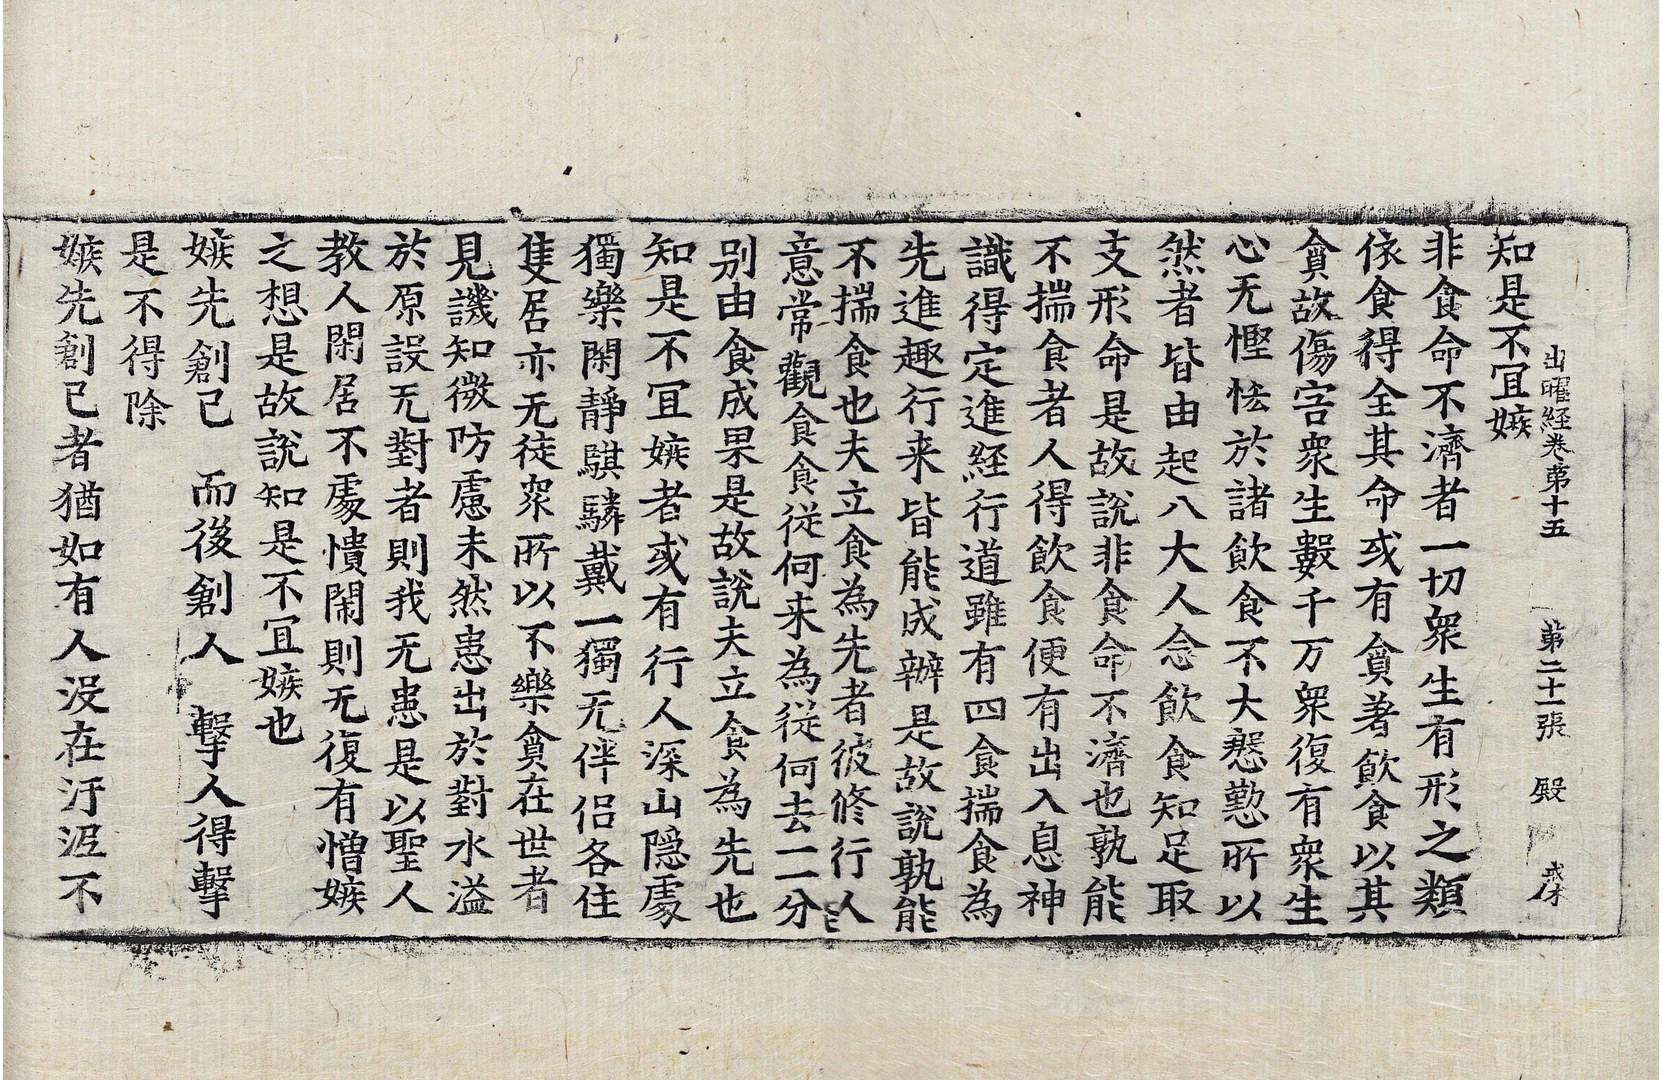 出曜経卷苐十五 苐二十一張 殿
知是不冝嫉
非食命不濟者一切衆生有形之類
依食得全其命或有貪著飲食以其
貪故傷害衆生數千万衆復有衆生
心无慳悋於諸飲食不大慇懃所以
然者皆由起八大人念飲食知足取
支形命是故說非食命不濟也孰能
不揣食者人得飲食便有出入息神
識得定進經行道雖有四食揣食為
先進趣行来皆能成辦是故說孰能
不揣食也夫立食為先者彼修行人
意常觀食食従何来為従何去一一分
別由食成果是故說夫立食為先也
知是不冝嫉者或有行人深山隱處
獨樂閑靜騏驎戴一獨无伴侣各住
隻居亦无徒衆所以不樂貪在世者
見譏知微防慮未然患出於對水溢
於原設无對者則我无患是以聖人
教人閑居不處憒閙則无復有憎嫉
之想是故說知是不冝嫉也
嫉先創己 而後創人 擊人得擊
是不得除
嫉先創己者猶如有人没在汙泥不